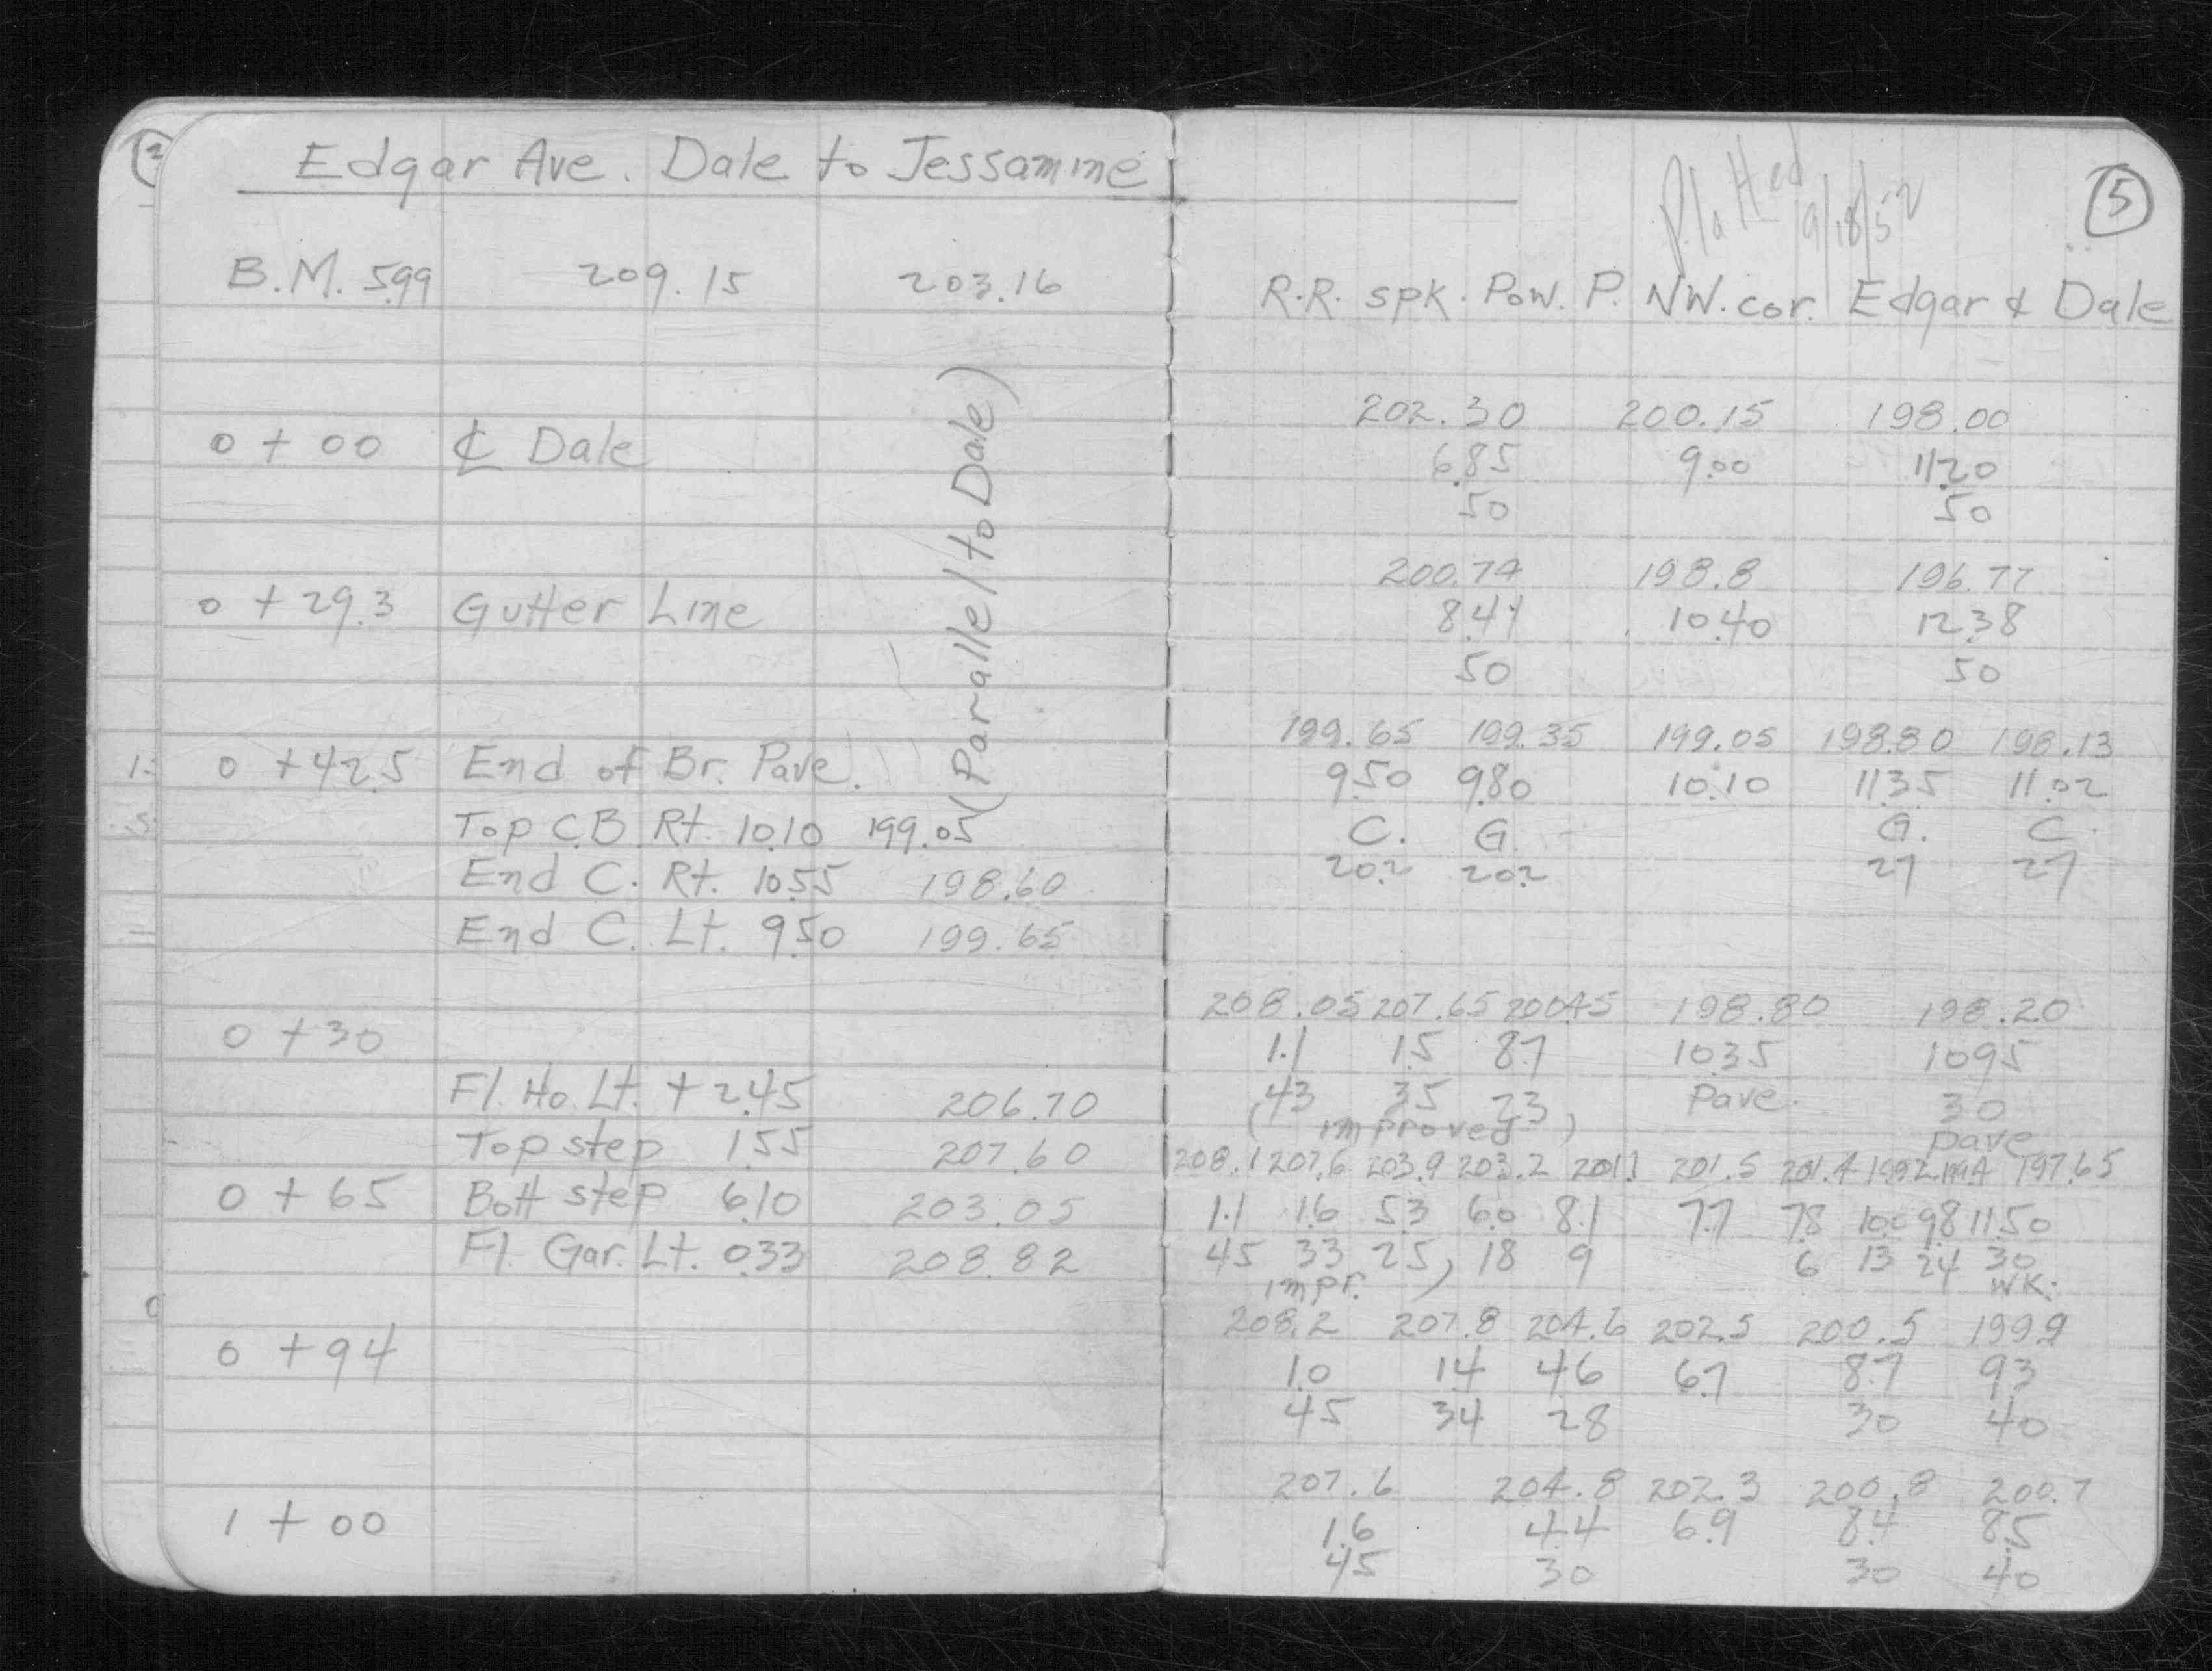 Edgar Ave. Dale to Jessamine
Platted
9/18/52
5
B.M. 5.99 209.15 203.16 R.R. spk. Pow. P. NW. cor. Edgar & Dale
(Parallel to Dale)
202.30 200.15 198.00
0 + 00 ℄ Dale 6.85 9.00 11.20
50 50
200.74 198.8 196.77
0 + 29.3 Gutter Line 8.41 10.40 12.38
50 50
199.65 199.35 199.05 198.80 198.13
0 + 42.5 End of Br. Pave. 9.50 9.80 10.10 11.35 11.02
Top C.B. Rt. 10.10 199.05 C. G. G. C.
End C. Rt. 10.55 198.60 20.2 20.2 27 27
End C. Lt. 9.50 199.65
208.05 207.65 200.45 198.80 198.20
0 + 30 1.1 1.5 8.7 10.35 10.95
Fl. Ho. Lt. + 2.45 206.70 43 35 23 Pave. 30
(improved) pave
Top step 1.55 207.60
208.1 207.6 203.9 203.2 201.1 201.5 201.4 199.2 199.4 197.65
0 + 65 Bott step 6.10 203.05 1.1 1.6 5.3 6.0 8.1 7.7 7.8 10.0 9.8 11.50
Fl. Gar. Lt. 0.33 208.82 45 33 25) 18 9 6 13 24 30
impr. WK.
208.2 207.8 204.6 202.5 200.5 199.9
0 + 94 1.0 1.4 4.6 6.7 8.7 9.3
45 34 28 30 40
207.6 204.8 202.3 200.8 200.7
1 + 00 1.6 4.4 6.9 8.4 8.5
45 30 30 40